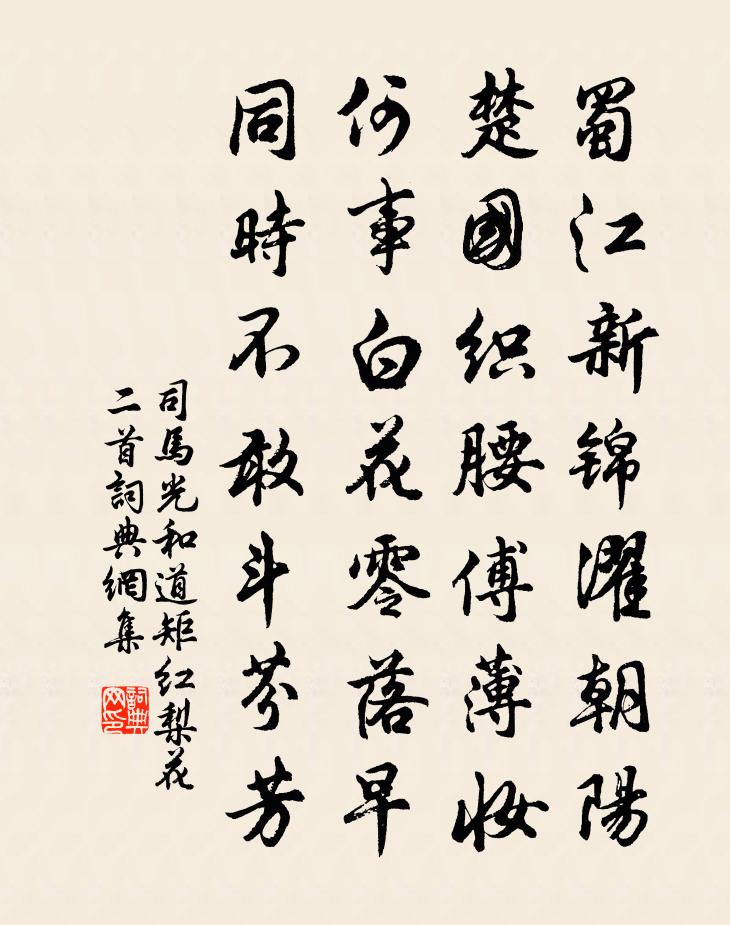 蜀江新锦濯朝陽
楚國织腰傅薄妝
何事白花零落早
同時不敢斗芬芳
司馬光和道矩红梨花
二首詞典網集
詞典
网印